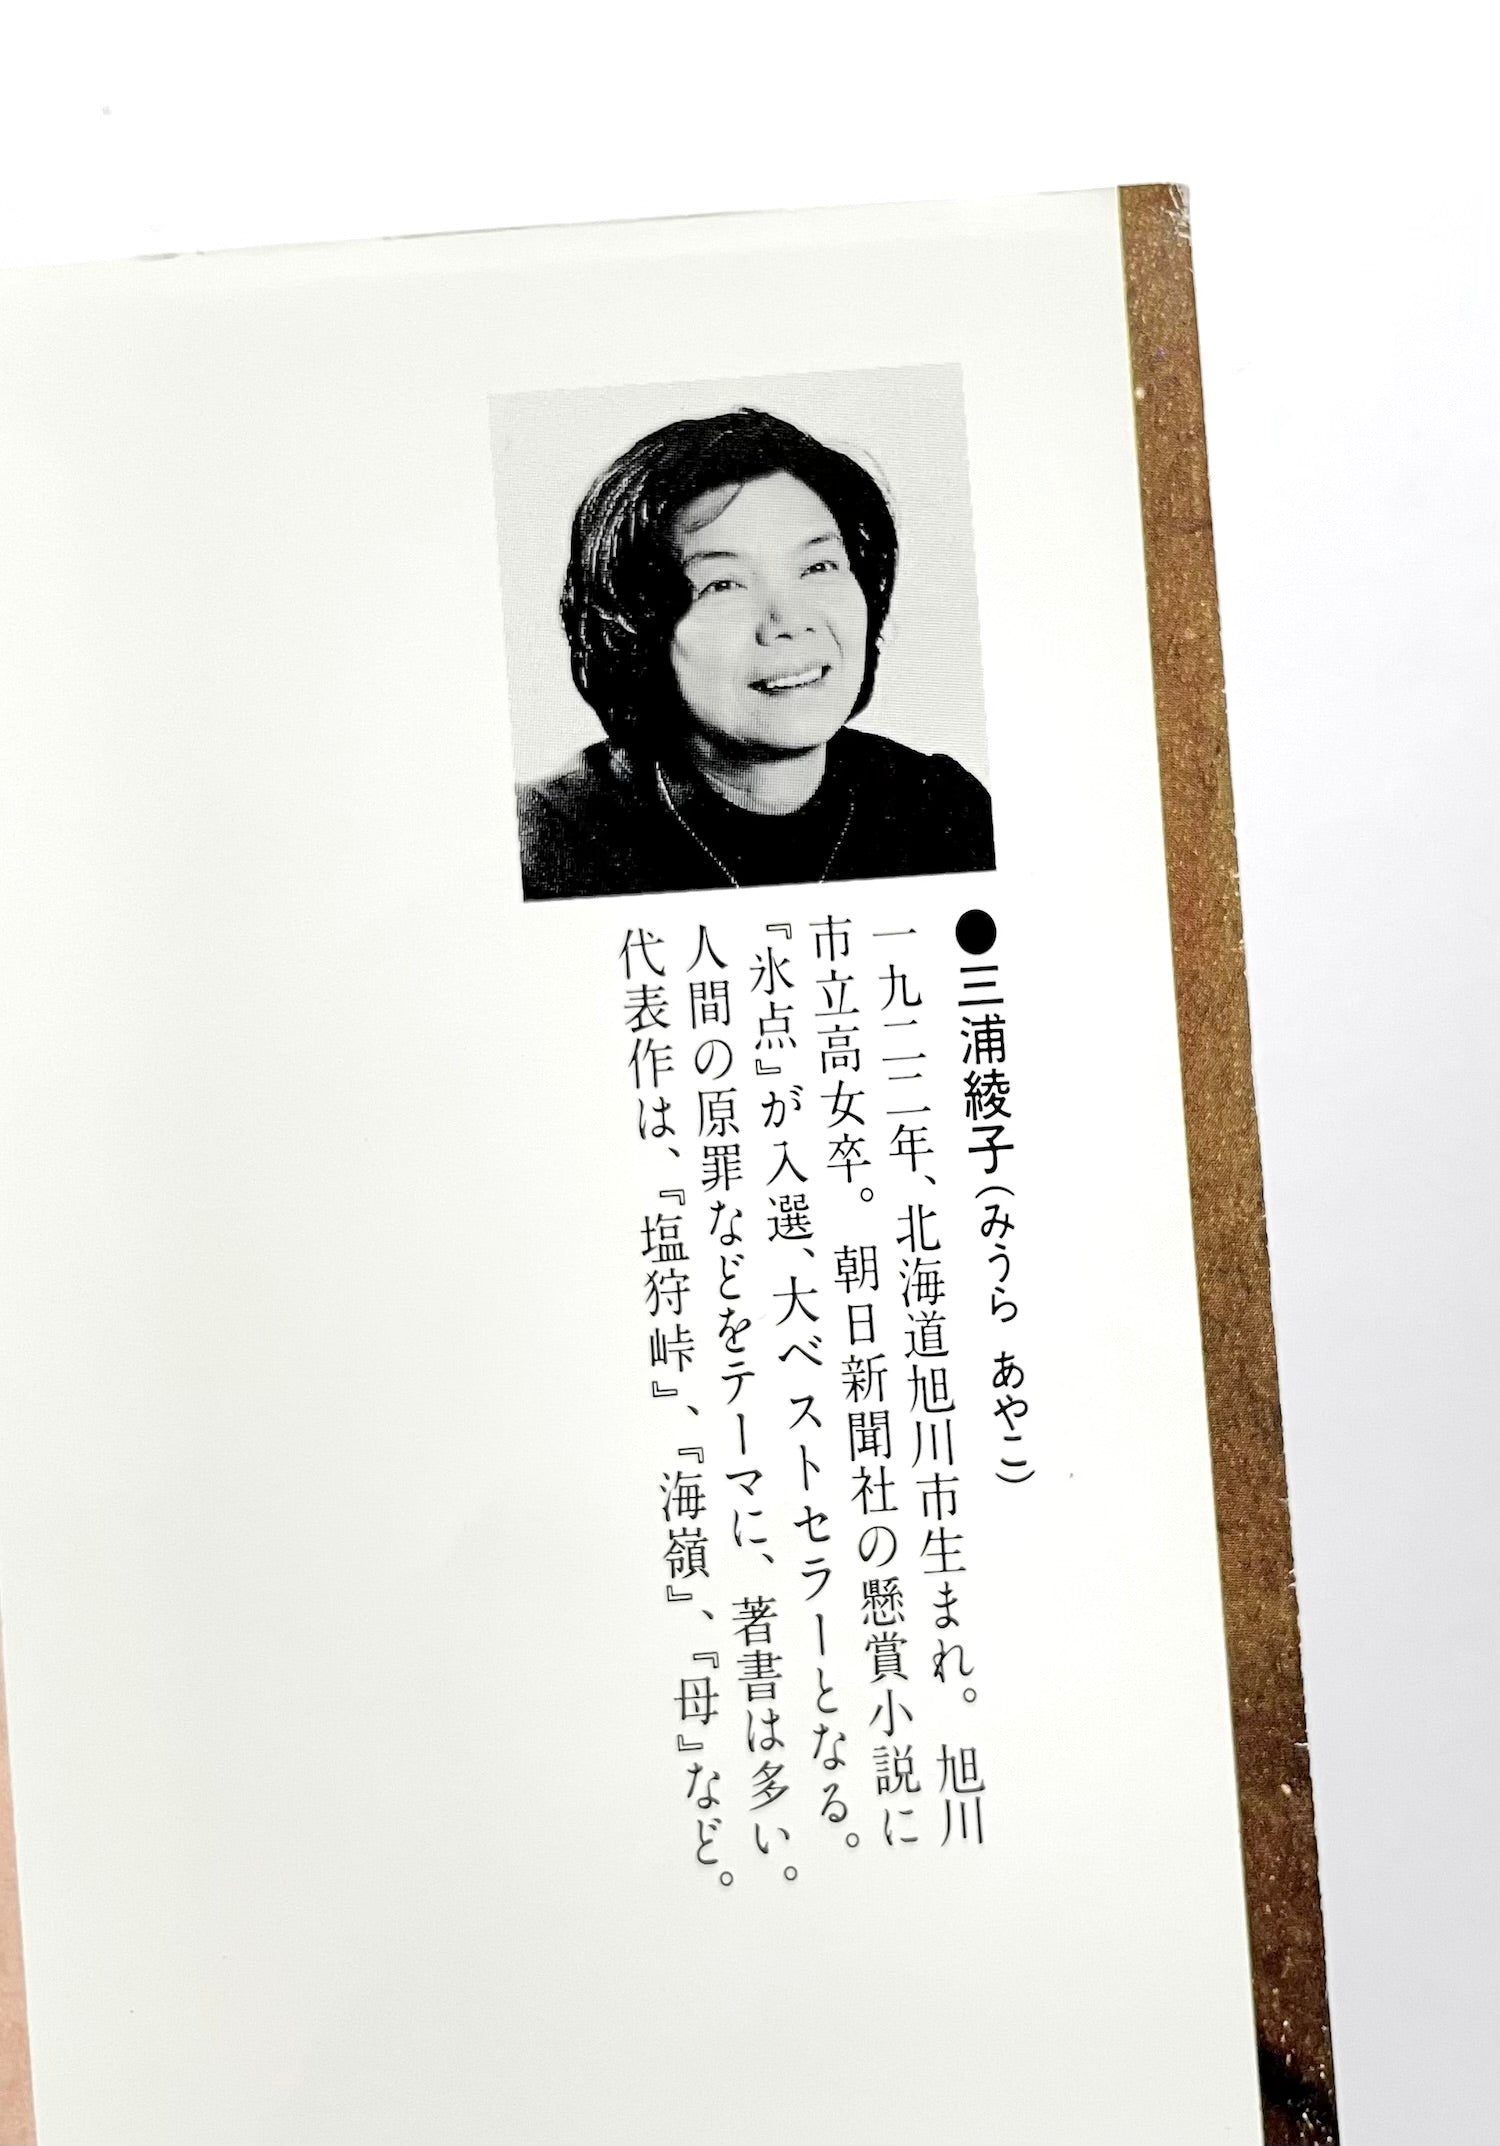 ●三浦綾子(みうら あやこ)
一九二二年、北海道旭川市生まれ。旭川
市立高女卒。朝日新聞社の懸賞小説に
『氷点』が入選、大ベストセラーとなる。
人間の原罪などをテーマに、著書は多い。
代表作は、『塩狩峠』、『海嶺』、『母』など。